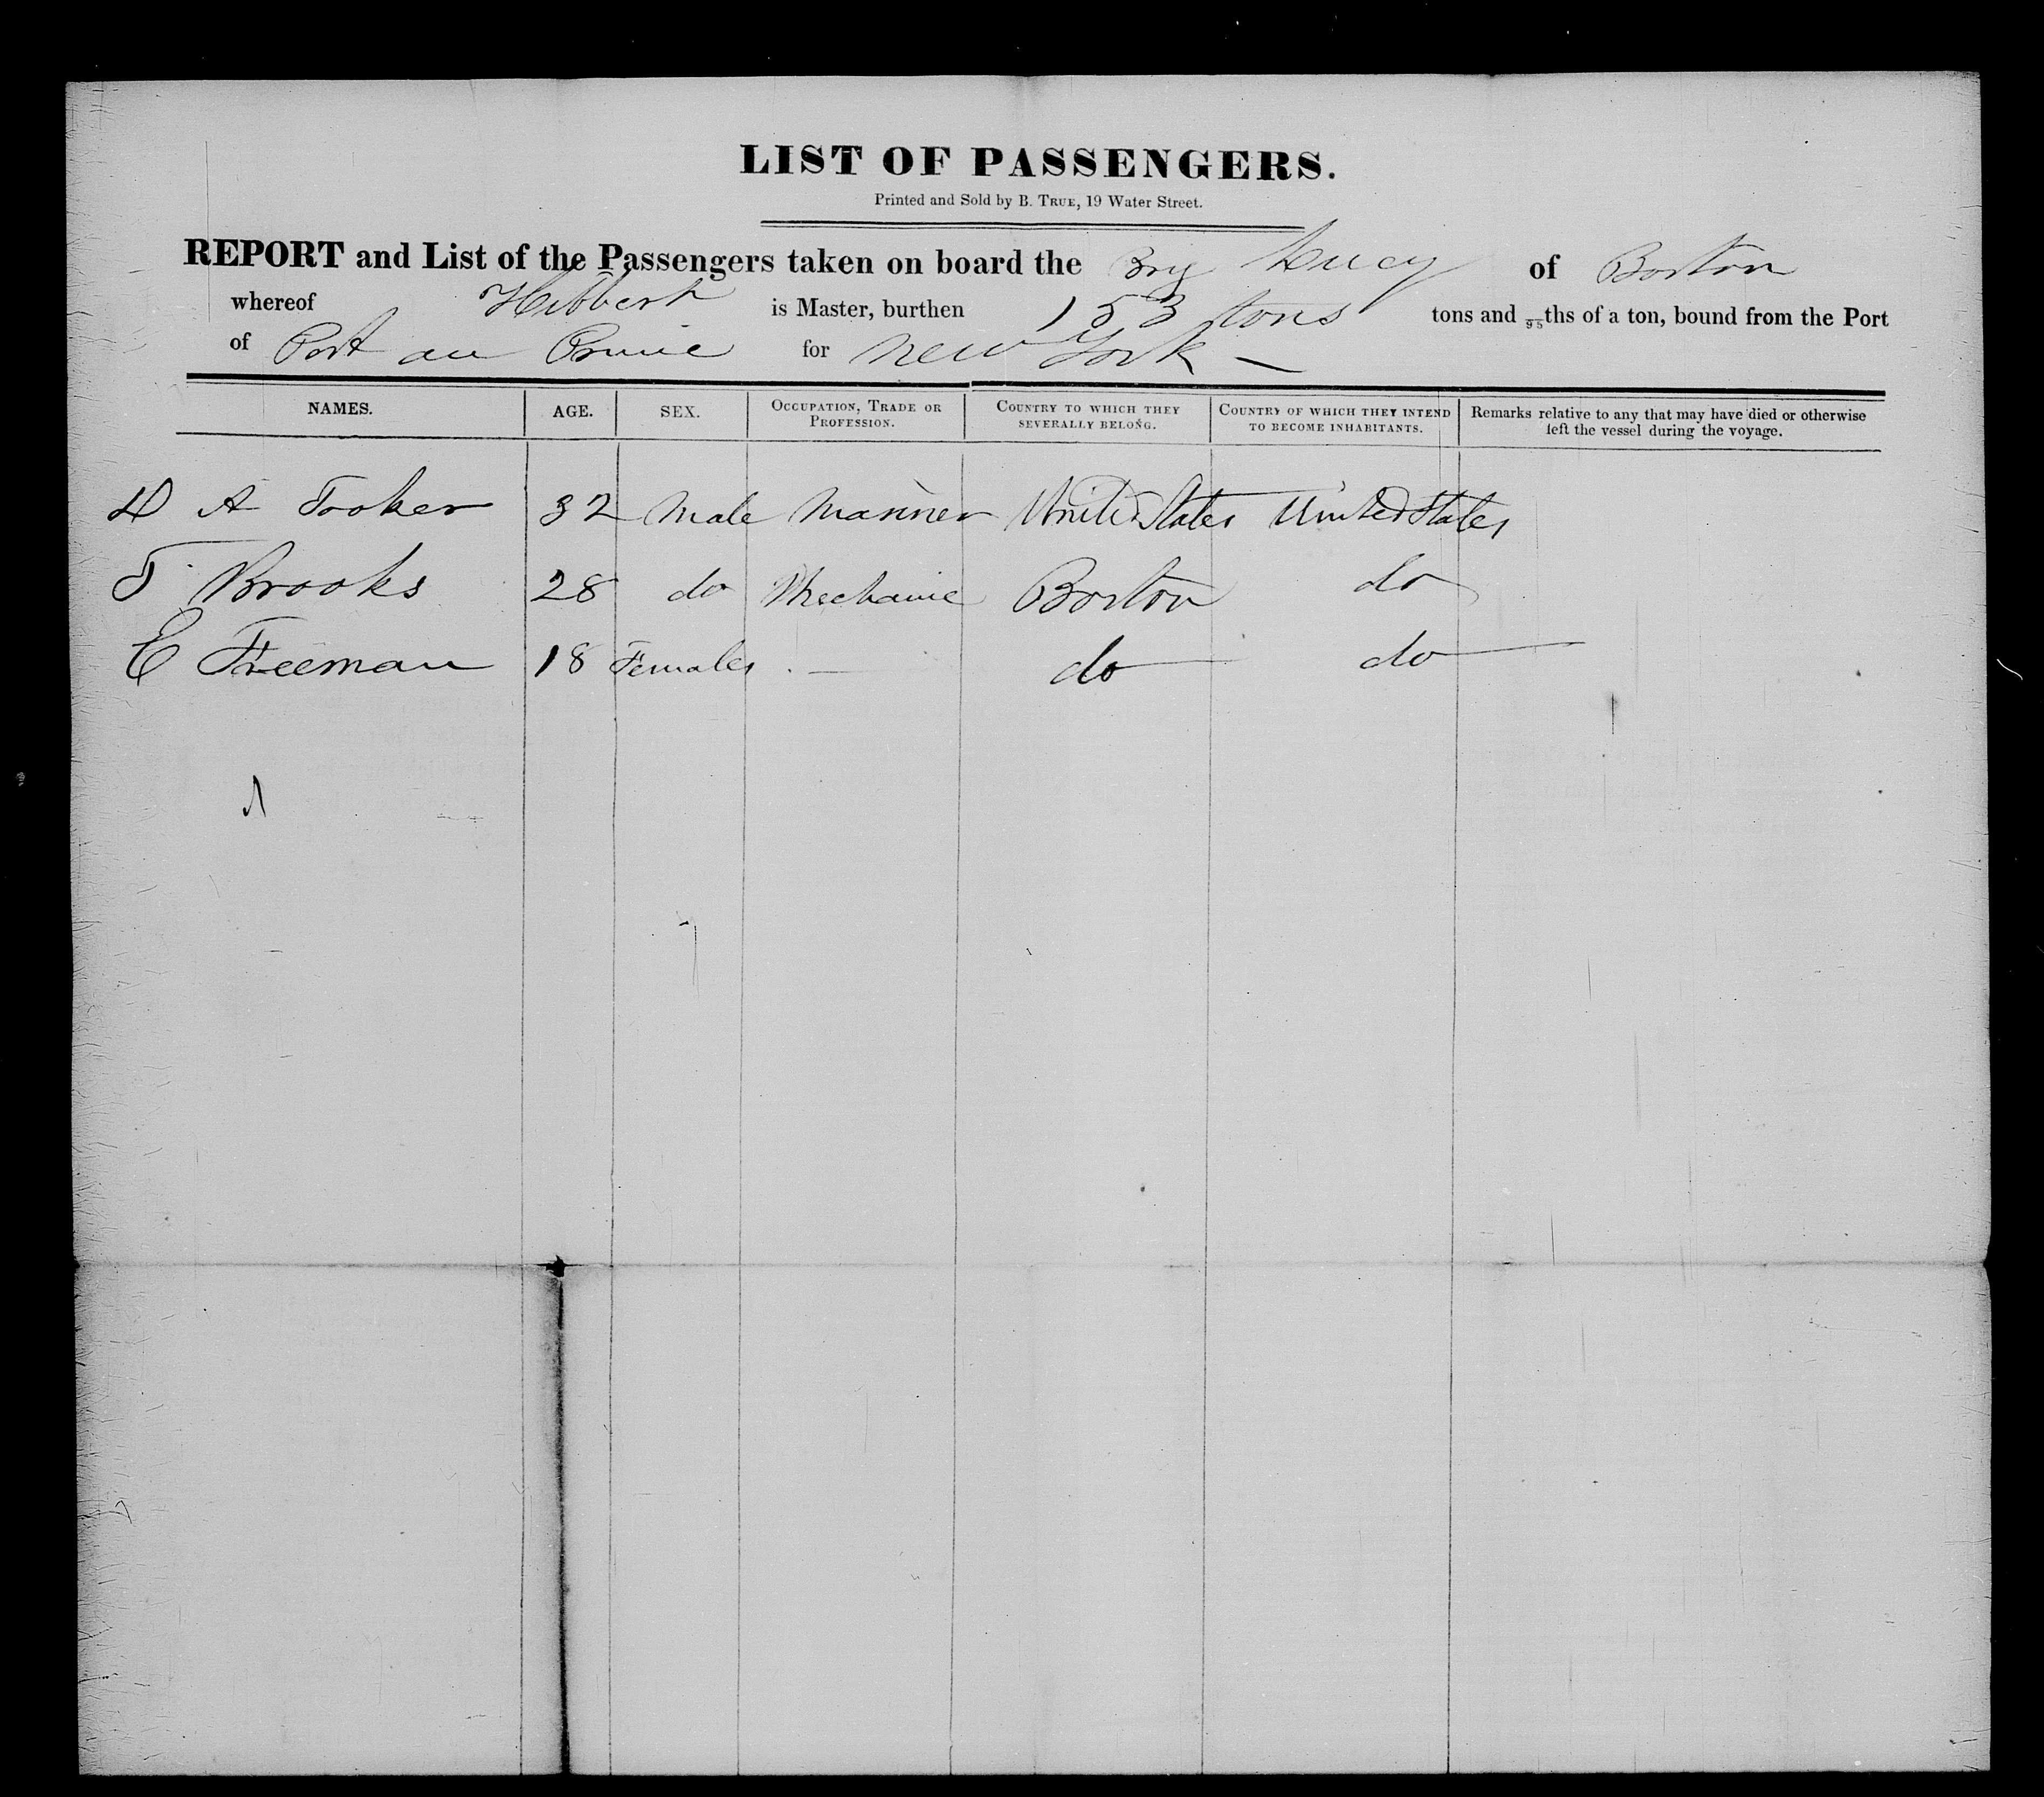 LIST OF PASSENGERS.
Printed and Sold by B. TRUE, 19 Water Street.
REPORT and List of the Passengers taken on board the Brig Lucy of Boston
whereof Hibbert is Master, burthen 153 tons tons and 95ths of a ton, bound from the Port
of Port au Prince for New York —
NAMES. AGE. SEX. OCCUPATION, TRADE OR PROFESSION. COUNTRY TO WHICH THEY SEVERALLY BELONG. COUNTRY OF WHICH THEY INTEND TO BECOME INHABITANTS. Remarks relative to any that may have died or otherwise left the vessel during the voyage.
D A Tooker 32 Male Mariner United States United States
T Brooks 28 do Mechanic Boston do
E Freeman 18 Females — do do